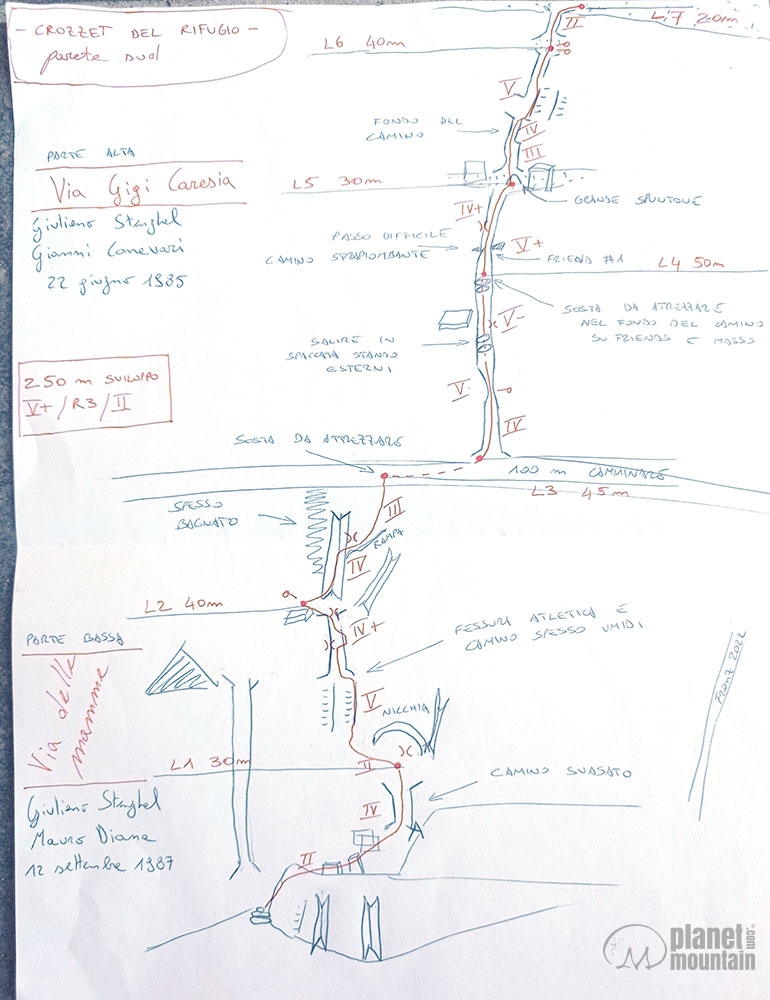 - CROZZET DEL RIFUGIO -
parete sud
L7 20m
II
L6 40m
V
FONDO DEL
CAMINO
IV
III
PARTE ALTA
Via Gigi Caresia
Giuliano Stenghel
Gianni Canevari
22 giugno 1985
L5 30m
GRANDE SPUNTONE
IV+
PASSO DIFFICILE
CAMINO STRAPIOMBANTE
V+
FRIEND #1
L4 50m
SOSTA DA ATREZZARE
NEL FONDO DEL CAMINO
SU FRIENDS E MASSO
V-
SALIRE IN
SPACCATA STANDO
ESTERNI
250 m SVILUPPO
V+/R3/II
V
IV
SOSTA DA ATREZZARE
100 m CAMMINARE
L3 45m
SPESSO
BAGNATO
III
RAMPA
IV
L2 40m
IV+
FESSURA ATLETICA E
CAMINO SPESSO UMIDI
PARTE BASSA
Via delle
mamme
V
NICCHIA
Frenz 2022
L1 30m
II
CAMINO SVASATO
IV
Giuliano Stenghel
Mauro Diana
12 settembre 1987
II
planet
mountain
.com